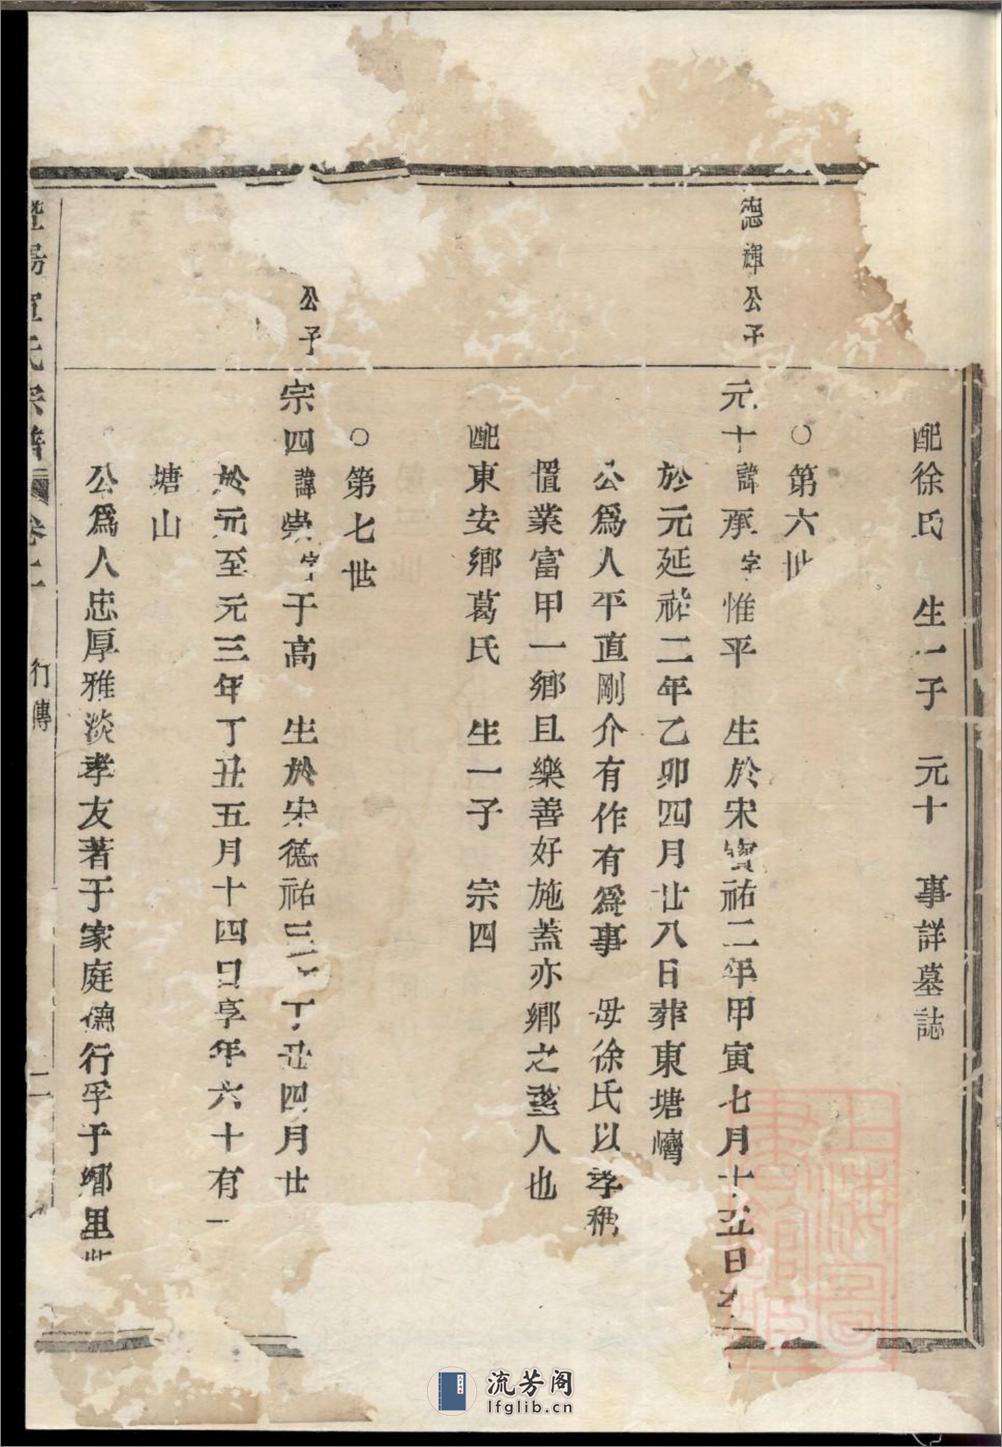 配徐氏 生一子 元十 事詳墓誌
○第六世
德輝公子
元十諱承字惟平 生於宋寶祐二年甲寅七月十五日
於元延祐二年乙卯四月廿八日葬東塘
公爲人平直剛介有作有爲事 母徐氏以孝稱
置業富甲一鄉且樂善好施蓋亦鄉之望人也
配東安鄉葛氏 生一子 宗四
○第七世
公子
宗四諱崇字于高 生於宋德祐三 丁丑四月廿
於元至元三年丁丑五月十四日享年六十有一
塘山
公爲人忠厚雅淡孝友著于家庭德行孚于鄉里
宗譜 卷二 行傳 二
上海圖書館藏
流芳阁
lfglib.cn